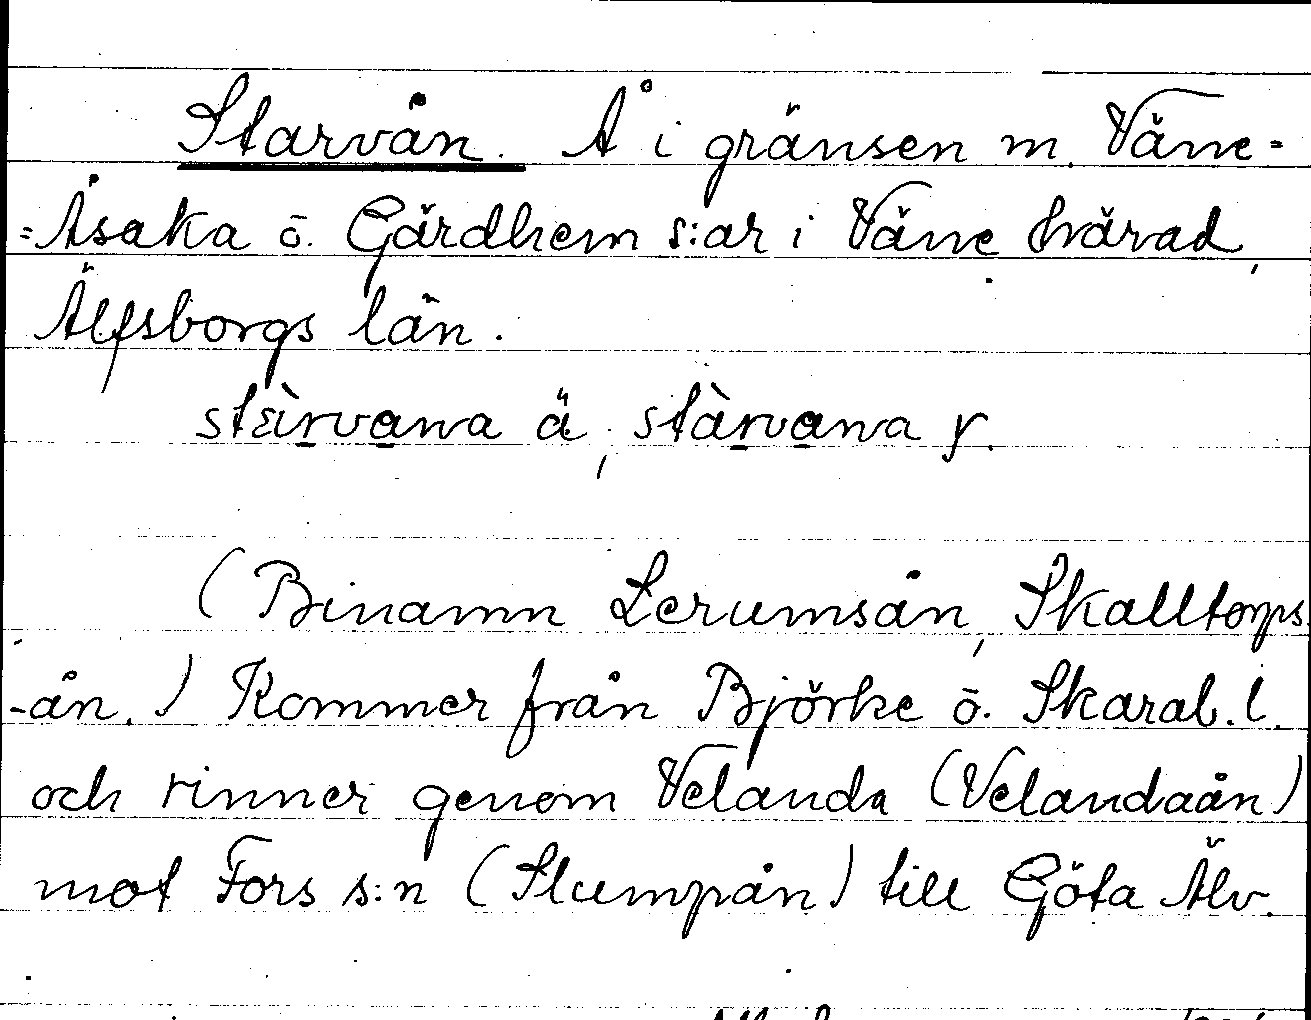 Starvån. Å i gränsen m. Väne=
=Åsaka o. Gärdhem s:ar i Väne härad,
Älfsborgs län.
stàrvana ä, stàrvana y.
(Binamn Lerumsån, Skalltorps
-ån.) Kommer från Björke o. Skarab. l.
och rinner genom Velanda (Velandaån)
mot Fors s:n (Slumpån) till Göta Älv.